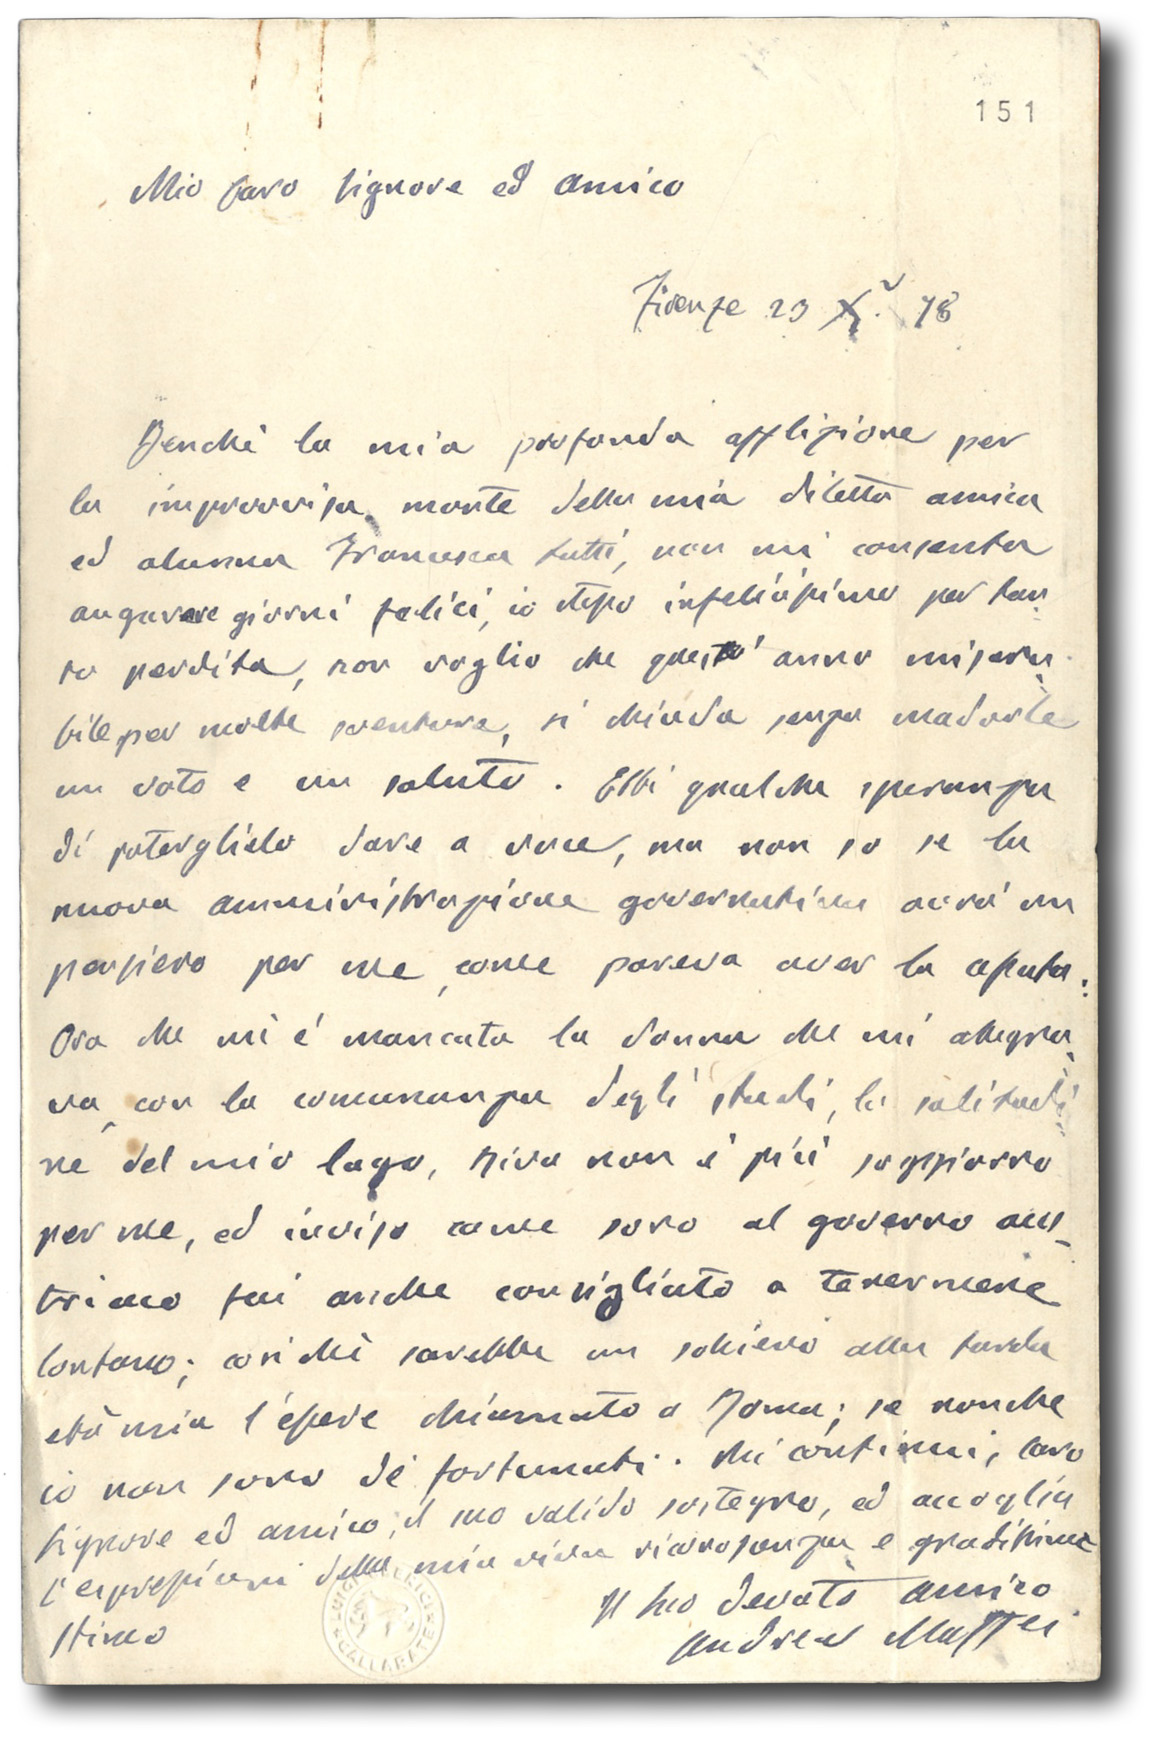 151
Mio Caro Signore ed amico
Firenze 23 Xʳ. 78
Benchè la mia profonda afflizione per
la improvvisa morte della mia diletta amica
ed alunna Francesca Lutti, non mi consenta
augurare giorni felici, io stesso infelicissimo per tan
ta perdita, non voglio che quest' anno misera-
bile per molte sventure, si chiuda senza madarle
un voto e un saluto. Ebbi qualche speranza
di poterglielo dare a voce, ma non so se la
nuova amministrazione governativa avrà un
pensiero per me, come pareva aver la caduta:
Ora che mi è mancata la donna che mi allegra-
va con la comunanza degli studi, la solitudi-
ne del mio lago, Riva non è più soggiorno
per me, ed inviso come sono al governo aus-
triaco fui anche consigliato a tenermene
lontano; cosichè sarebbe un sollievo alla tarda
età mia l'essere chiamato a Roma; se nonche
io non sono de' fortunati. Mi continui, caro
Signore ed amico, il suo valido sostegno, ed accoglia
l'espressioni della mia viva riconosanza e grandissima
stima
Il suo devoto amico
Andrea Maffei
GALLARATE